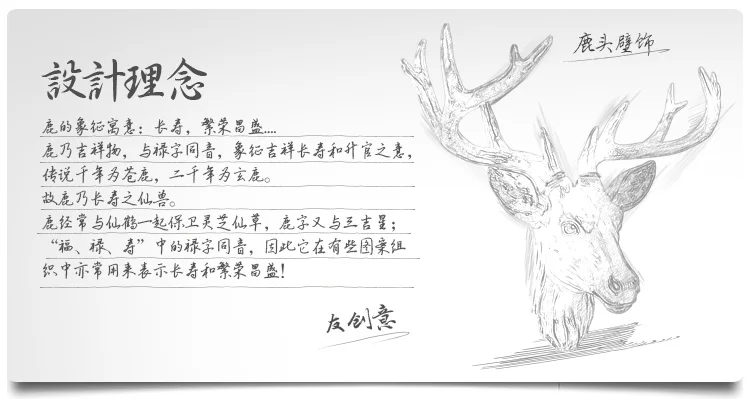 設計理念
鹿头壁饰
鹿的象征寓意：长寿，繁荣昌盛....
鹿乃吉祥物，与禄字同音，象征吉祥长寿和升官之意，
传说千年为苍鹿，二千年为玄鹿。
故鹿乃长寿之仙兽。
鹿经常与仙鹤一起保卫灵芝仙草，鹿字又与三吉星；
“福、禄、寿”中的禄字同音，因此它在有些图案组
织中亦常用来表示长寿和繁荣昌盛！
友创意